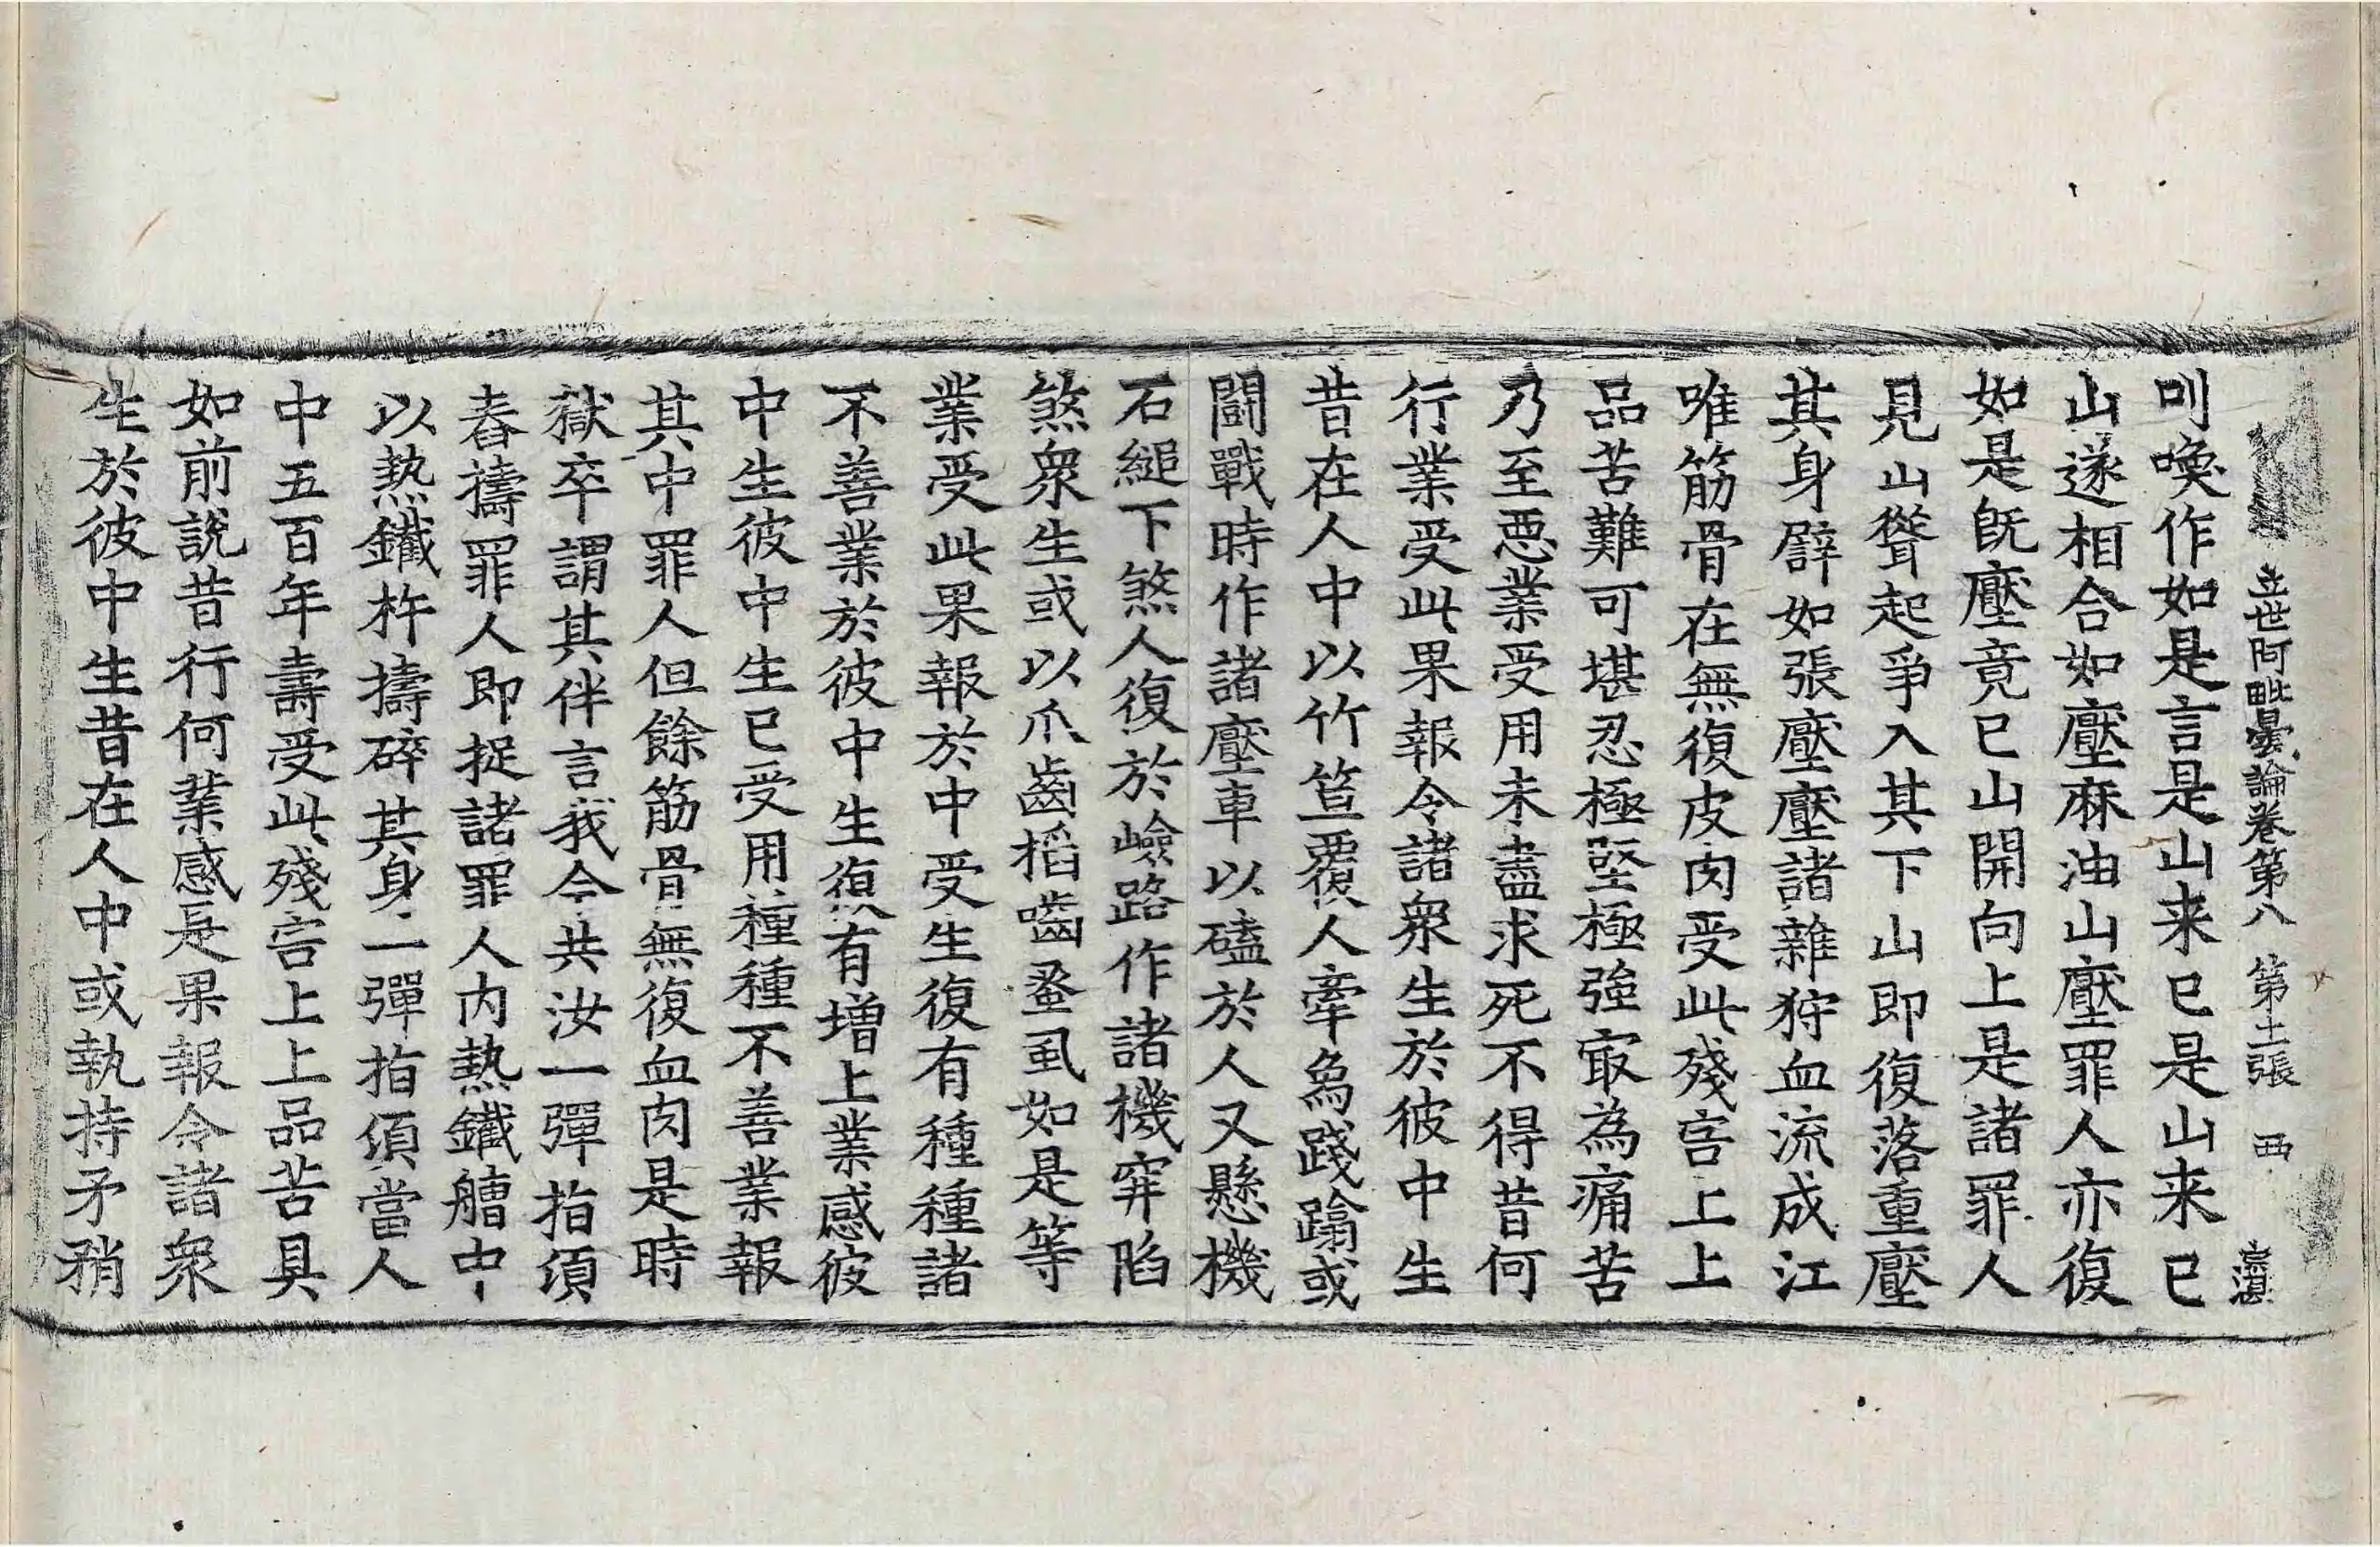 立世阿毗曇論卷第八 第土張 西
叫喚作如是言是山来已是山来已
山遂相合如壓麻油山壓罪人亦復
如是旣壓竟已山開向上是諸罪人
見山聳起爭入其下山即復落重壓
其身辟如張壓壓諸雜狩血流成江
唯筋骨在無復皮肉受此殘害上上
品苦難可堪忍極堅極強㝡為痛苦
乃至悪業受用未盡求死不得昔何
行業受此果報令諸衆生於彼中生
昔在人中以竹笪覆人牽爲踐蹹或
鬪戰時作諸壓車以磕於人又懸機
石縋下煞人復於嶮路作諸機穽陷
煞衆生或以爪齒搯嚙蚤虱如是等
業受此果報於中受生復有種種諸
不善業於彼中生復有増上業感彼
中生彼中生已受用種種不善業報
其中罪人但餘筋骨無復血肉是時
獄卒謂其伴言我令共汝一彈指湏
舂擣罪人即捉諸罪人内熱鐵艚中
以熱鐵杵擣碎其身一彈指湏當人
中五百年壽受此殘害上上品苦具
如前說昔行何業感是果報令諸衆
生於彼中生昔在人中或執持矛矟